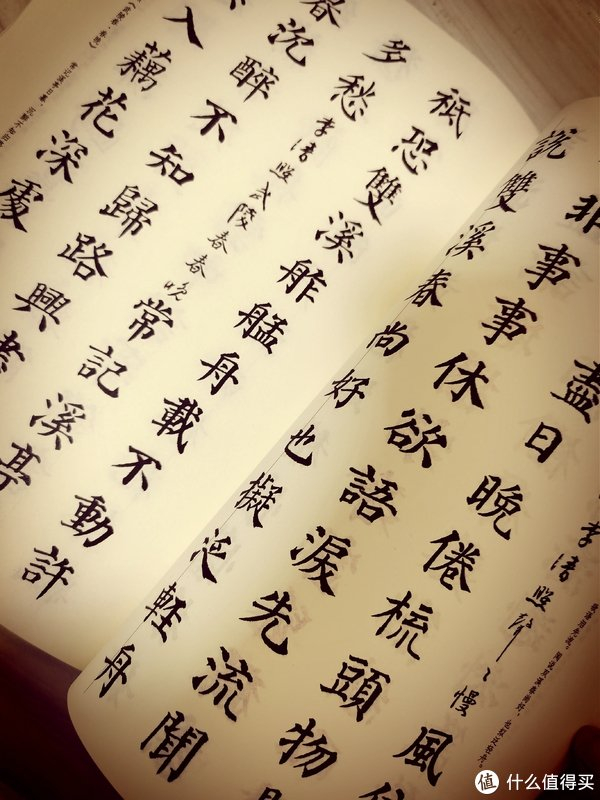 盡日晚倦梳頭物
李清照聲〻慢風
非事事休欲語淚先流聞
說雙溪春尚好也擬泛輕舟
祗恐雙溪舴艋舟載不動許
多愁李清照武陵春春晚常記溪亭
沉醉不知歸路興盡
入藕花深處
什么值得买